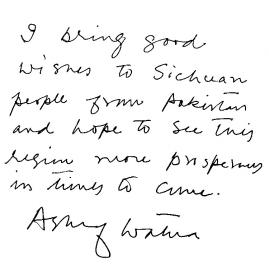 I bring good
wishes to Sichuan
people from Pakistan
and hope to see this
region more prosperous
in times to come.